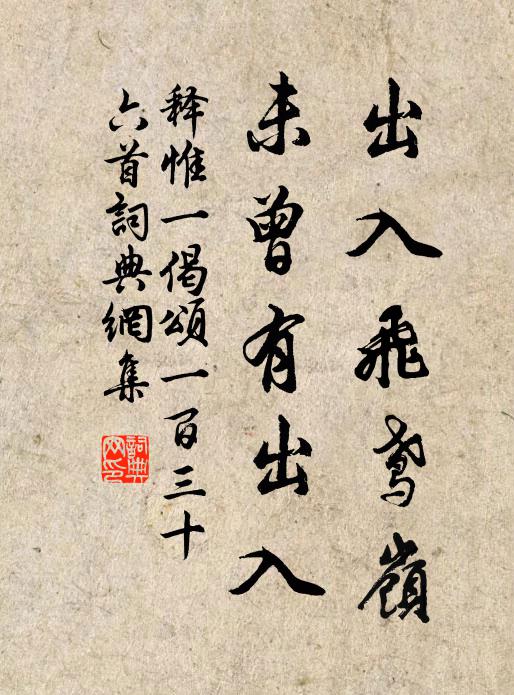 出入飛鸢嶺
未曾有出入
释惟一偈頌一百三十
六首詞典網集
詞典
网印